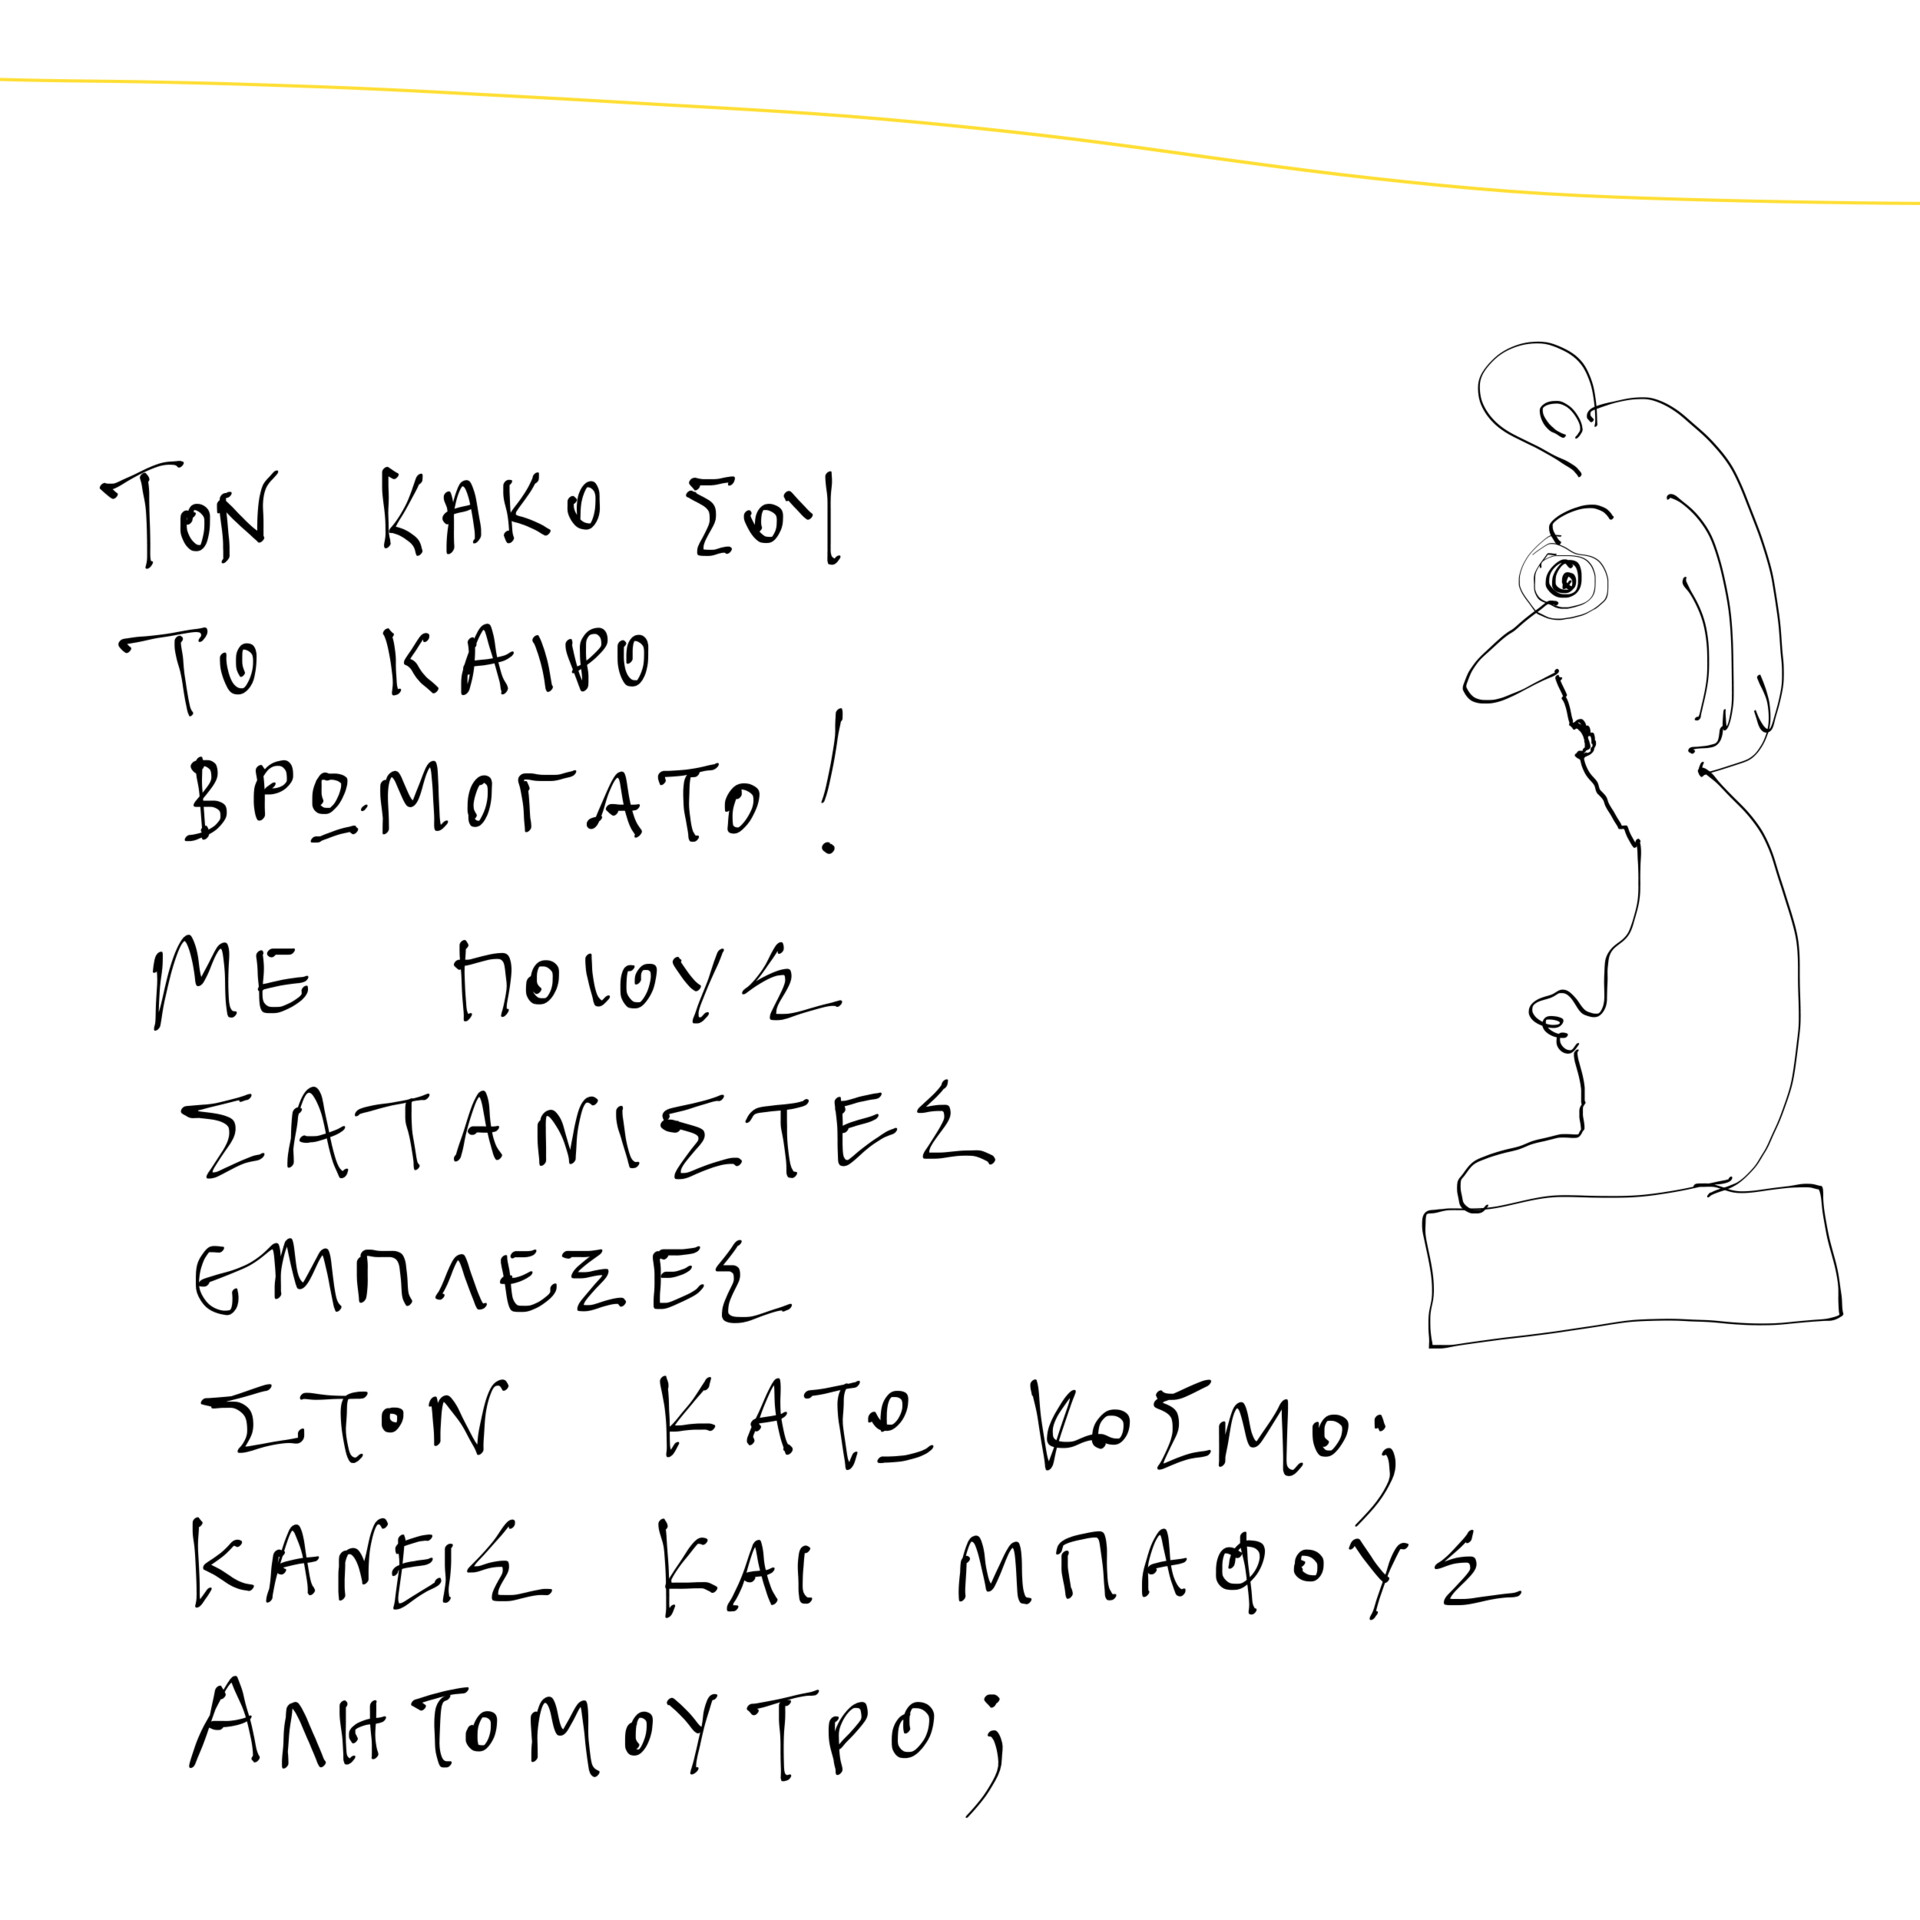 ΤΟΝ ΚΑΚΟ ΣΟΥ
ΤΟ ΚΑΙΡΟ
ΒΡΟΜΟΓΑΤΟ!
ΜΕ ΠΟΙΟΥΣ
ΣΑΤΑΝΙΣΤΕΣ
ΕΜΠΛΕΞΕΣ
ΣΤΟΝ ΚΑΤΩ ΚΟΣΜΟ;
ΚΑΝΕΙΣ ΚΑΙ ΜΠΑΦΟΥΣ
ΑΛΗΤΟΜΟΥΤΡΟ;